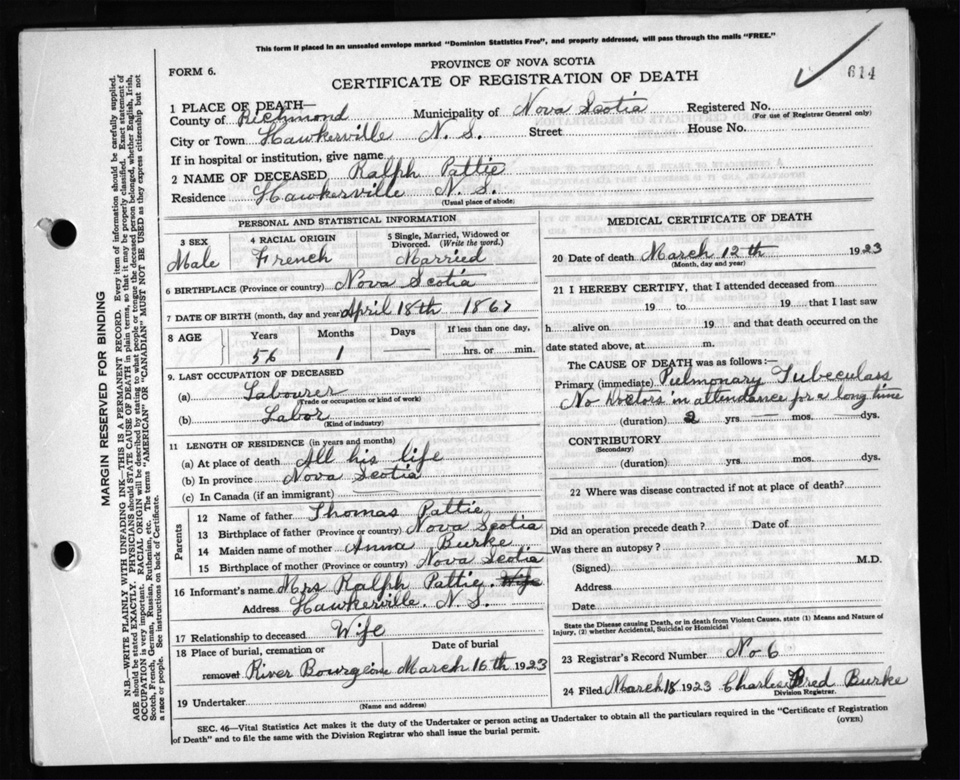 This form if placed in an unsealed envelope marked "Dominion Statistics Free", and properly addressed, will pass through the mails "FREE."
614
PROVINCE OF NOVA SCOTIA
FORM 6.
CERTIFICATE OF REGISTRATION OF DEATH
1 PLACE OF DEATH—
County of Richmond Municipality of Nova Scotia Registered No.
(For use of Registrar General only)
City or Town Hawkerville N. S. Street House No.
If in hospital or institution, give name
2 NAME OF DECEASED Ralph Pattie
Residence Hawkerville N. S.
(Usual place of abode)
PERSONAL AND STATISTICAL INFORMATION
3 SEX 4 RACIAL ORIGIN 5 Single, Married, Widowed or Divorced. (Write the word.)
Male French Married
6 BIRTHPLACE (Province or country) Nova Scotia
7 DATE OF BIRTH (month, day and year) April 18th 1867
8 AGE Years Months Days If less than one day,
56 1 — hrs. or min.
9. LAST OCCUPATION OF DECEASED
(a) Labourer
(Trade or occupation or kind of work)
(b) Labor
(Kind of industry)
11 LENGTH OF RESIDENCE (in years and months)
(a) At place of death All his life
(b) In province Nova Scotia
(c) In Canada (if an immigrant)
Parents
12 Name of father Thomas Pattie
13 Birthplace of father (Province or country) Nova Scotia
14 Maiden name of mother Anna Burke
15 Birthplace of mother (Province or country) Nova Scotia
16 Informant's name Mrs Ralph Pattie. Wife
Address Hawkerville. N. S.
17 Relationship to deceased Wife
18 Place of burial, cremation or removal Date of burial
River Bourgeoise March 16th 1923
19 Undertaker
(Name and address)
MEDICAL CERTIFICATE OF DEATH
20 Date of death March 12th 1923
(Month, day and year)
21 I HEREBY CERTIFY, that I attended deceased from
19 to 19 that I last saw
h alive on 19 and that death occurred on the
date stated above, at m.
The CAUSE OF DEATH was as follows:—
Primary (immediate) Pulmonary Tubeculass
No Doctors in attendance for a long time
(duration) 2 yrs — mos. dys.
CONTRIBUTORY
(Secondary)
(duration) yrs mos. dys.
22 Where was disease contracted if not at place of death?
Did an operation precede death? Date of
Was there an autopsy?
(Signed) M.D.
Address
Date
State the Disease causing Death, or in death from Violent Causes, state (1) Means and Nature of
Injury, (2) whether Accidental, Suicidal or Homicidal
23 Registrar's Record Number No 6
24 Filed March 18 1923 Charles Fred Burke
Division Registrar.
SEC. 46—Vital Statistics Act makes it the duty of the Undertaker or person acting as Undertaker to obtain all the particulars required in the "Certificate of Registration
of Death" and to file the same with the Division Registrar who shall issue the burial permit.
(OVER)
MARGIN RESERVED FOR BINDING
N.B.—WRITE PLAINLY WITH UNFADING INK—THIS IS A PERMANENT RECORD. Every item of information should be carefully supplied.
AGE should be stated EXACTLY. PHYSICIANS should STATE CAUSE OF DEATH in plain terms, so that it may be properly classified. Exact statement of
OCCUPATION is very important. RACIAL ORIGIN will be described by stating to what people or tongue the deceased person belonged, whether English, Irish,
Scotch, French, German, Russian, Ruthenian, etc. The terms "AMERICAN" or "CANADIAN" MUST NOT BE USED as they express citizenship but not
a race or people. See instructions on back of Certificate.